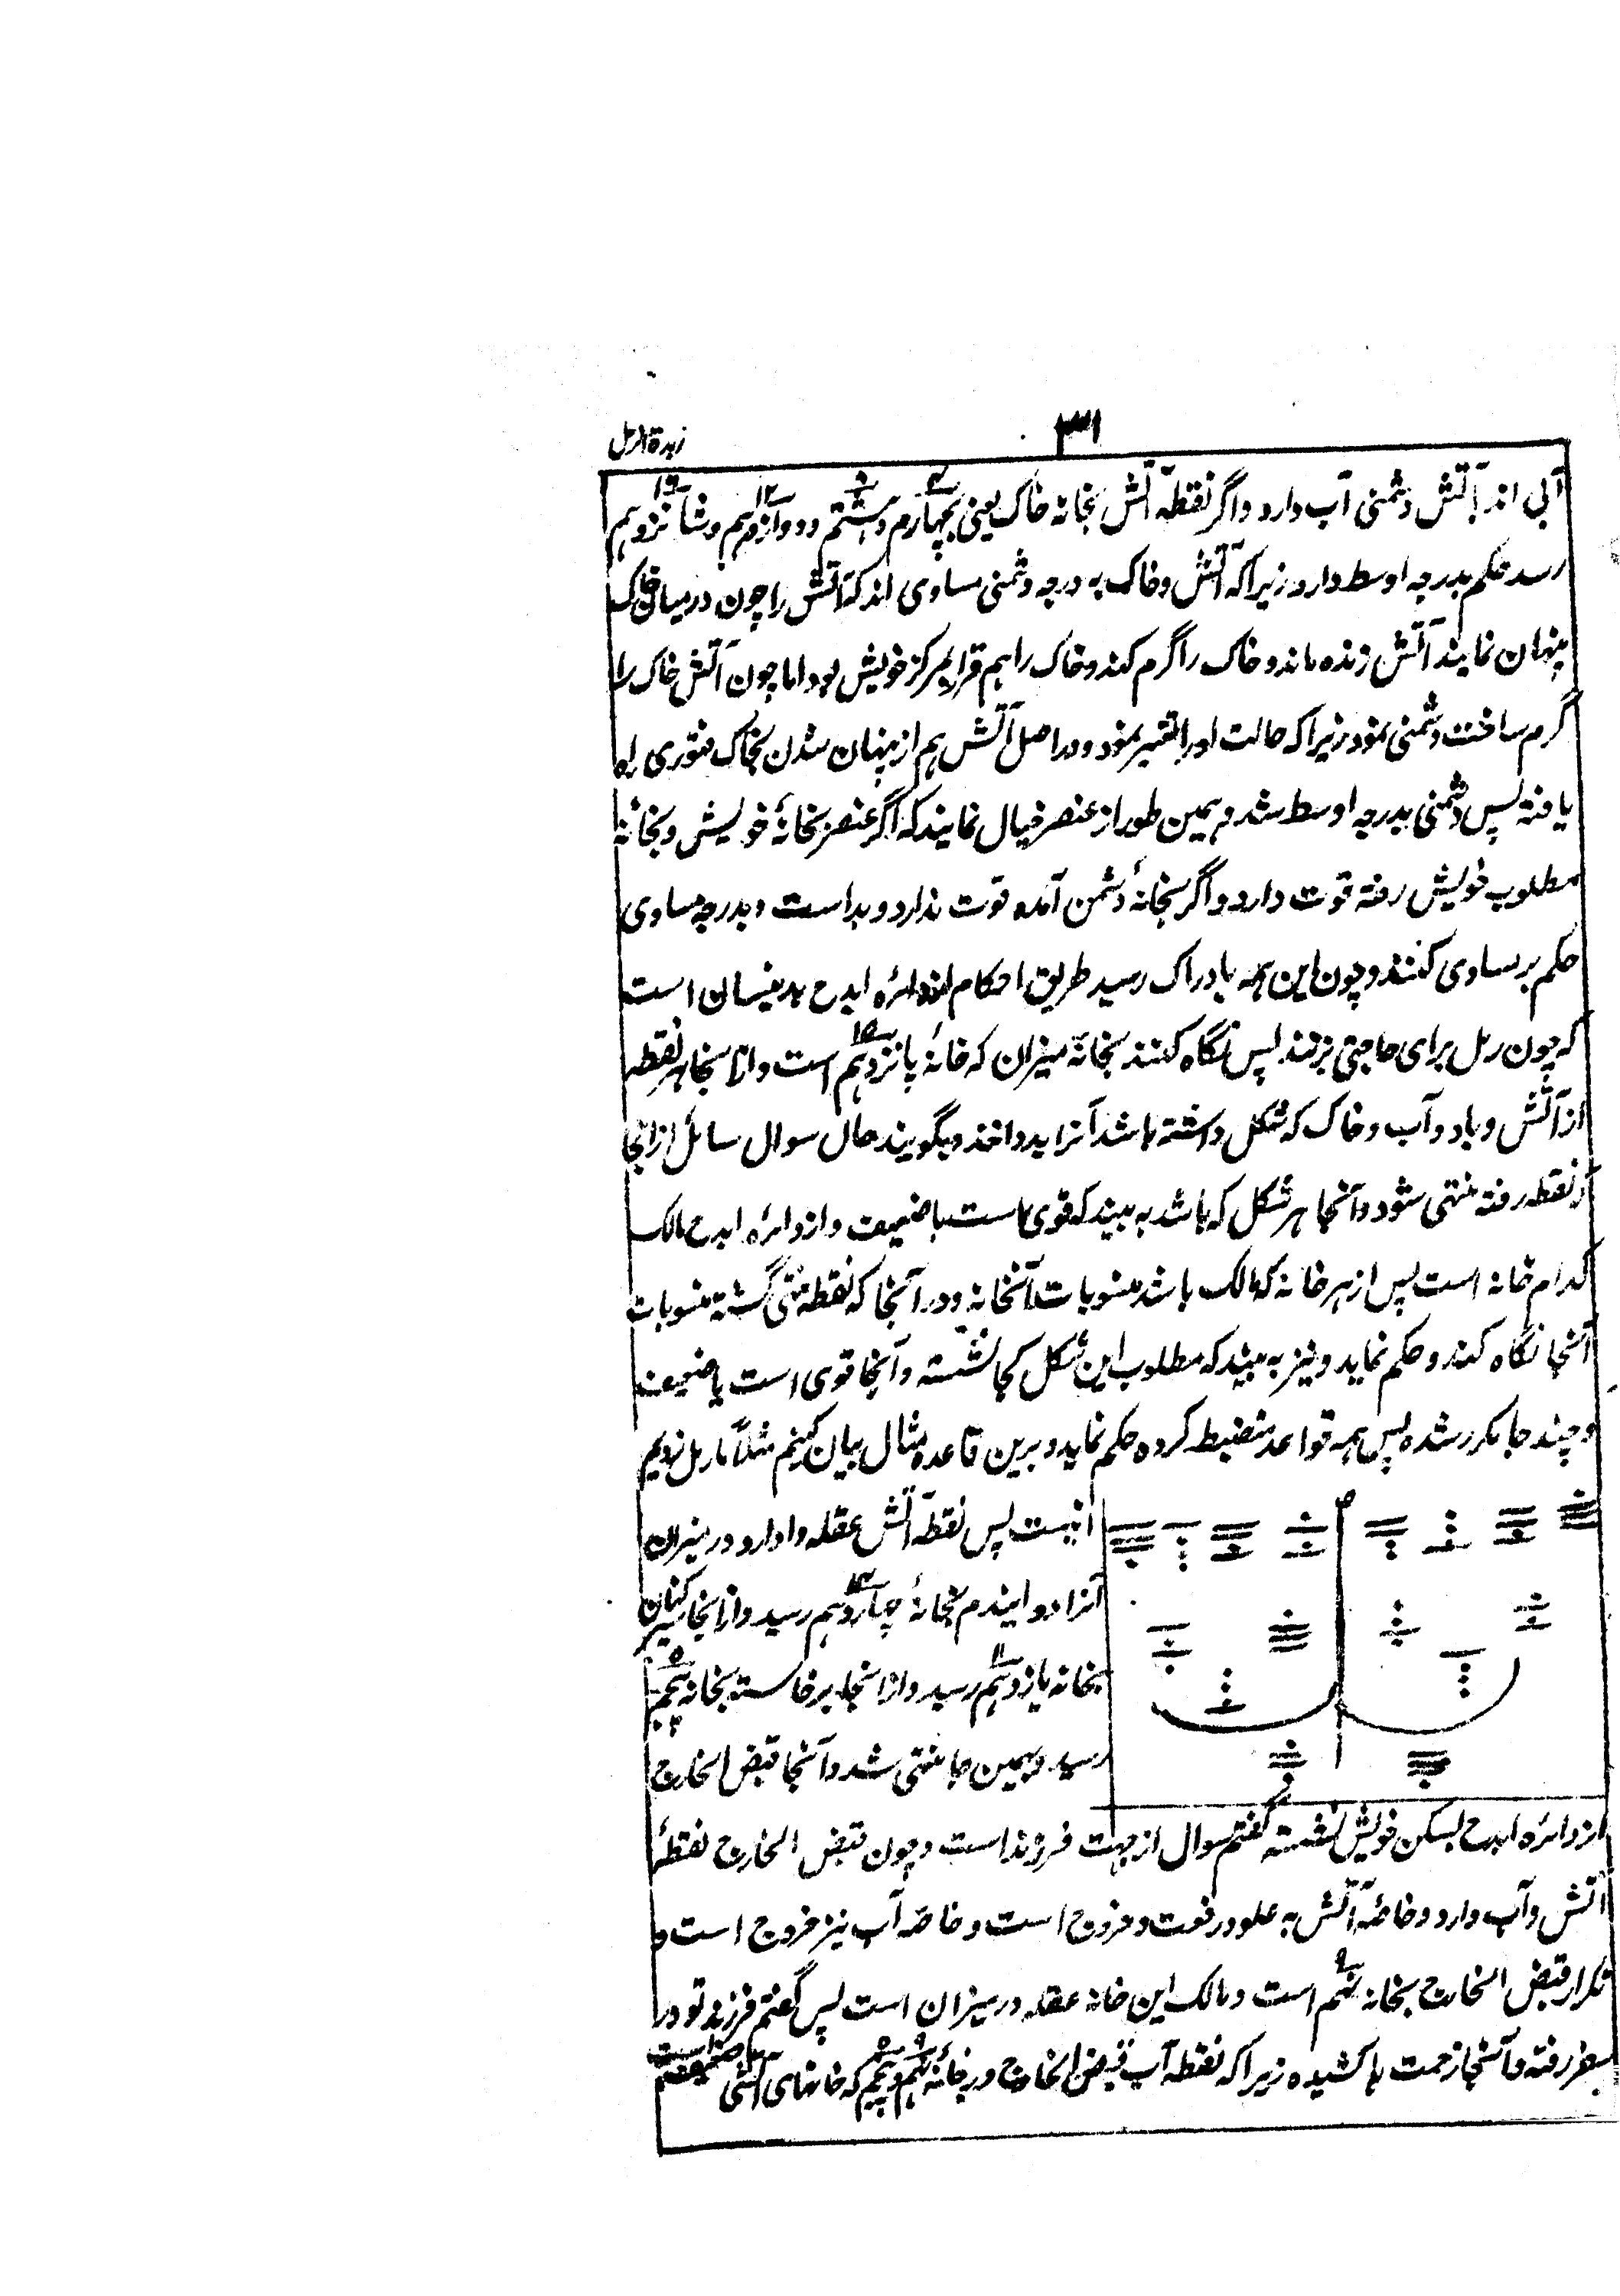 زبدة الرمل
۳۱
آبی اند بآتش دشمنی آب دارد و اگر نقطهٔ آتش بخانه خاک یعنی بچهارم و هشتم و دوازدهم و شانزدهم
رسد حکم بدرجه اوسط دارد زیرا که آتش و خاک به درجه دشمنی مساوی اند که آتش را چون درمیان خاک
پنهان نمایند آتش زنده ماند و خاک را گرم کند و خاک را هم قرار بمرکز خویش بود اما چون آتش خاک را
گرم ساخت دشمنی نمود زیرا که حالت او را تغییر نمود و در اصل آتش هم از پنهان شدن بخاک فتوری راه
یافته پس دشمنی بدرجه اوسط شد و همین طور از عنصر خیال نمایند که اگر عنصر بخانهٔ خویش و بخانهٔ
مطلوب خویش رفته قوت دارد و اگر بخانهٔ دشمن آمده قوت ندارد و بد است و بدرجه مساوی
حکم بر مساوی کنند و چون این همه بادراک رسید طریق احکام از دائره ابدح بدینسان است
که چون رمل برای حاجتی بزنند پس نگاه کنند بخانهٔ میزان که خانهٔ پانزدهم است و از آنجا هر نقطه
از آتش و باد و آب و خاک که شکل داشته باشد آنرا بدوانند و بگویند حال سوال سائل از آنجا
که نقطه رفته منتهی شود و آنجا هر شکل که باشد به بیند که قوی است یا ضعیف و از دائره ابدح مالک
کدام خانه است پس از هر خانه که مالک باشد منسوبات آنخانه و در آنجا که نقطه منتهی گشته منسوبات
آنجا نگاه کند و حکم نماید و نیز به بیند که مطلوب این شکل کجا نشسته و آنجا قوی است یا ضعیف
و چند جا مکرر شده پس همه قواعد منضبط کرده حکم نماید و برین قاعده مثال بیان کنیم مثلاً ما رمل زدیم
اینست پس نقطهٔ آتش عقله و ادارو در میزان
آنرا دوانیدم بخانهٔ چهاردهم رسید و از آنجا سیر کنان
بخانه یازدهم رسید و از آنجا برخاسته بخانه پنجم
رسید و بهمین جا منتهی شد و آنجا قبض الخارج
از دائره ابدح بسکن خویش نشسته گفتم سوال از جهت فرزند است و چون قبض الخارج نقطهٔ
آتش و آب دارد و خاصهٔ آتش به علو و رفعت و خروج است و خاصه آب نیز خروج است و
تکرار قبض الخارج بخانه نهم است و مالک این خانه عقله در میزان است پس گفتم فرزند تو در
سفر رفته و آنجا زحمت ها کشیده زیرا که نقطه آب قبض الخارج در خانهٔ نهم و پنجم که خانهای آتشی است ضعیف